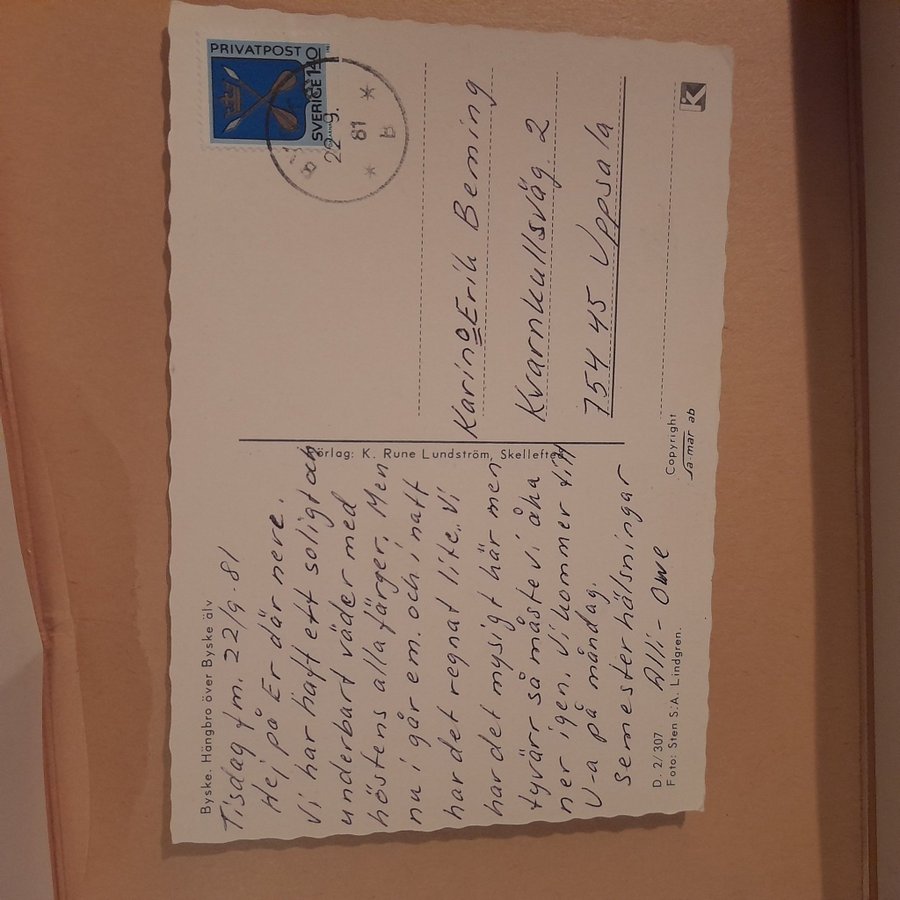 Byske. Hängbro över Byske älv
Tisdag fm. 22/9-81
Hej på Er där nere.
Vi har haft ett soligt och
underbart väder med
höstens alla färger. Men
nu i går em. och i natt
har det regnat lite.. Vi
har det mysigt här men
tyvärr så måste vi åka
ner igen. Vi kommer till
U-a på måndag.
Semesterhälsningar
Alli - Owe
D. 2/307
Foto: Sten S.A. Lindgren.
Förlag: K. Rune Lundström, Skellefteå
PRIVATPOST
SVERIGE 1.40
22.9.
81
B
Karin o Erik Bening
Kvarnkullsväg. 2
754 45 Uppsala
Copyright
sa-mar ab
K